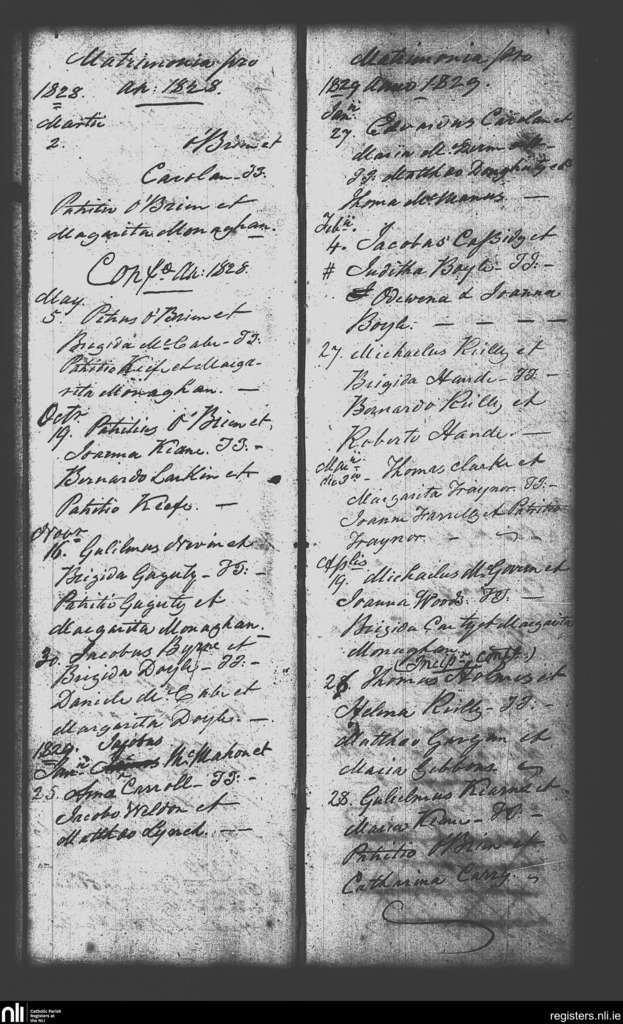 Matrimonia pro
1828. An: 1828.
Martii
2. O'Brien et
Carolan - TT:
Patritio O'Brien et
Margarita Monaghan.
An: 1828.
May
5. Petrus O'Brien et
Brigida McCabe - TT:
Patritio Keefe et Marga-
rita Monaghan. —
Octr
19. Patritius O'Brien et
Joanna Keane. TT: -
Bernardo Larkin et
Patritio Keefe. —
Novr
16. Gulielmus Nevin et
Brigida Gaguty - TT: -
Patritio Gaguty et
Margarita Monaghan.
30. Jacobus Byrne et
Brigida Doyle - TT: -
Daniele McCabe et
Margarita Doyle. —
1829. Jacobus
Janr. McMahon et
25. Carroll - TT: -
Jacobo Weldon et
Matthao Lynch. —
Matrimonia pro
1829 Anno 1829.
Janr.
27. Edwardus Carolan et
Maria
TT: Matthao et
Thoma McManus —
Febr.
4. Jacobus Cassidy et
# Juditha Boyle - TT: -
& Joanna
Boyle. — — — —
27. Michaelus Reilly et
Brigida Hande - TT: -
Bernardo Reilly et
Roberto Hande. —
Thomas Clarke et
Margarita Traynor TT: -
Joanne Farrelly et Patritio
Traynor —
Aplis
19. Michaelus McGovern et
Joanna Woods. TT: —
Brigida Carty et Margarita
Monaghan
Thomas Holmes et
Helena Reilly - TT: -
Matthao Gargan et
Maria Gibbons
28. Gulielmus Kearns et
Maria Keane - TT: -
Patritio O'Brien et
Catharina Carry.
nli Catholic Parish
Registers at
the NLI
registers.nli.ie